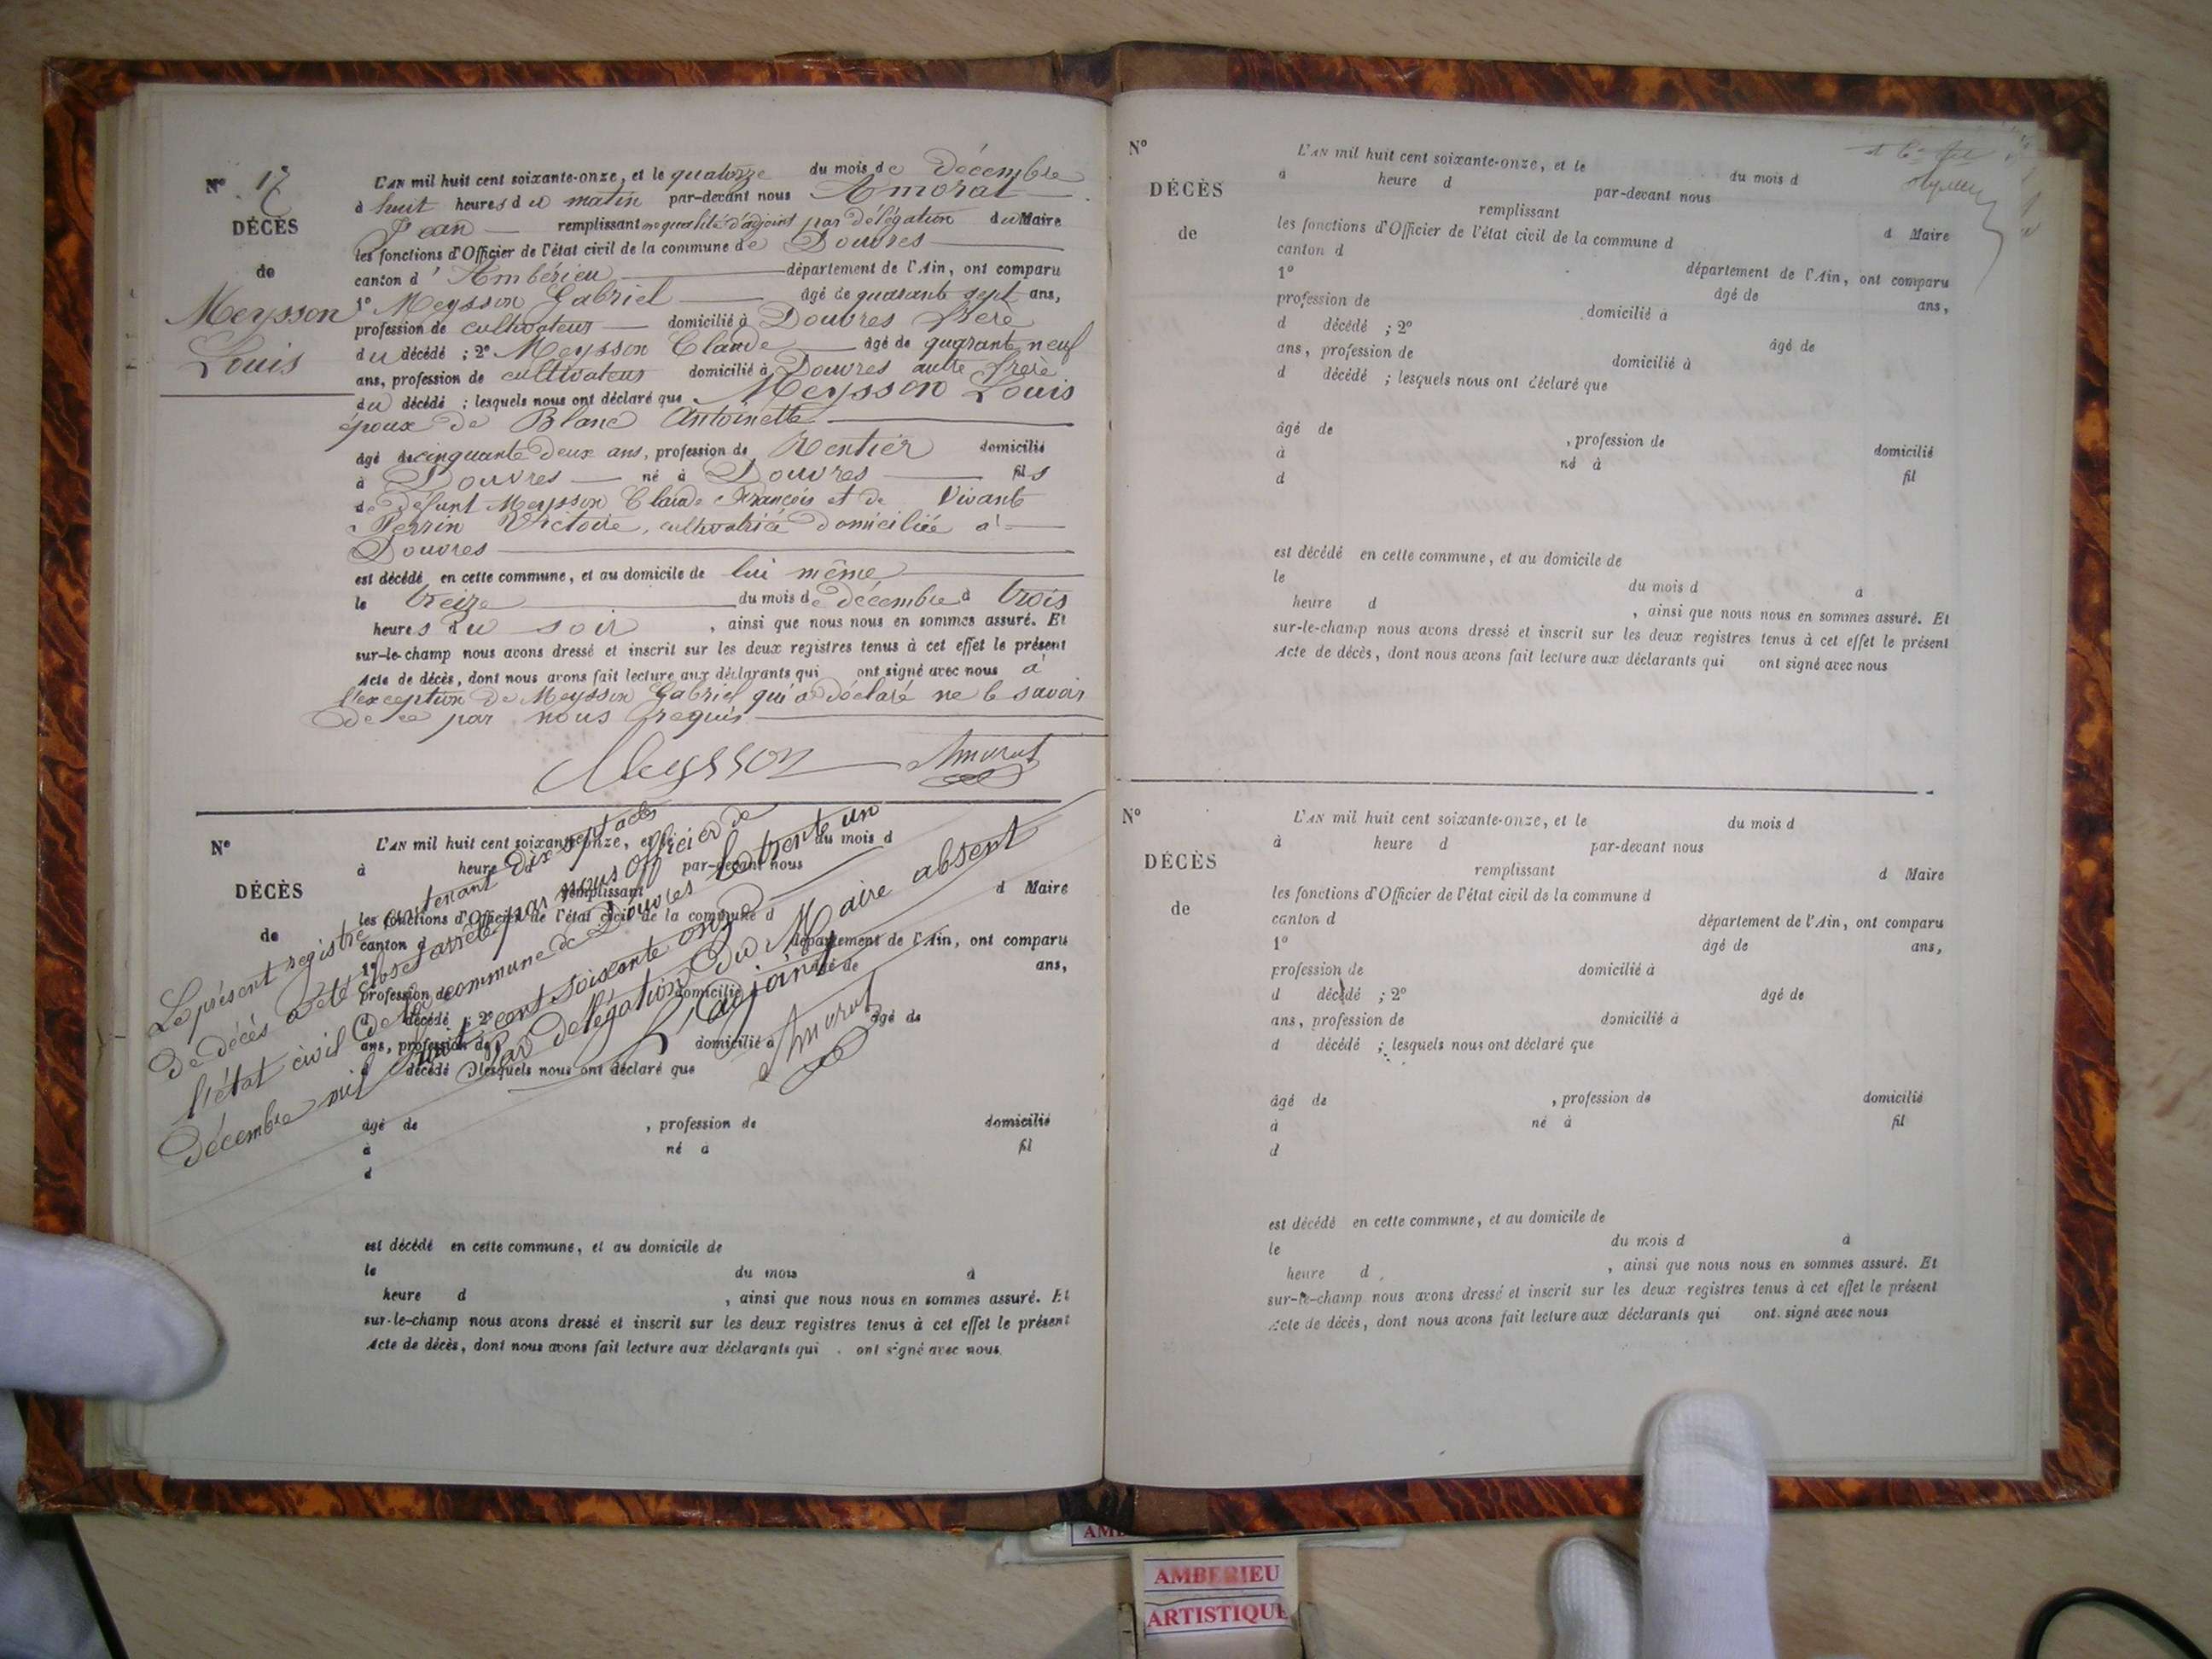 N° 17
DÉCÈS
de
Meysson
Louis
L'AN mil huit cent soixante-onze, et le quatorze du mois de décembre
à huit heures du matin par-devant nous Amorat
Jean remplissant en qualité d'adjoint par délégation du Maire
les fonctions d'Officier de l'état civil de la commune de Douvres
canton d'Ambérieu département de l'Ain, ont comparu
1° Meysson Gabriel âgé de quarante sept ans,
profession de cultivateur domicilié à Douvres frère
du décédé ; 2° Meysson Claude âgé de quarante neuf
ans, profession de cultivateur domicilié à Douvres autre frère
du décédé ; lesquels nous ont déclaré que Meysson Louis
époux de Blanc Antoinette
âgé de cinquante deux ans, profession de Rentier domicilié
à Douvres né à Douvres fils
de défunt Meysson Claude François et de Vivante
Perrin Victoire, cultivatrice domiciliée à
Douvres
est décédé en cette commune, et au domicile de lui même
le treize du mois de décembre à trois
heures du soir , ainsi que nous nous en sommes assuré. Et
sur-le-champ nous avons dressé et inscrit sur les deux registres tenus à cet effet le présent
Acte de décès, dont nous avons fait lecture aux déclarants qui ont signé avec nous à
l'exception de Meysson Gabriel qui a déclaré ne le savoir
de ce par nous requis
Meysson Amorat
N°
DÉCÈS
de
L'AN mil huit cent soixante-onze, et le du mois d
à heure d par-devant nous
remplissant d Maire
les fonctions d'Officier de l'état civil de la commune d
canton d département de l'Ain, ont comparu
1° âgé de ans,
profession de domicilié à
d décédé ; 2° âgé de
ans, profession de domicilié à
d décédé ; lesquels nous ont déclaré que
Le présent registre contenant dix sept actes
de décès a été clos et arrêté par nous officier de
l'état civil de la commune de Douvres le trente un
décembre mil huit cent soixante onze
Par délégation du Maire absent
L'adjoint
Amorat
âgé de , profession de domicilié
à né à fil
d
est décédé en cette commune, et au domicile de
le du mois à
heure d , ainsi que nous nous en sommes assuré. Et
sur-le-champ nous avons dressé et inscrit sur les deux registres tenus à cet effet le présent
Acte de décès, dont nous avons fait lecture aux déclarants qui ont signé avec nous
N°
DÉCÈS
de
L'AN mil huit cent soixante-onze, et le du mois d
à heure d par-devant nous
remplissant d Maire
les fonctions d'Officier de l'état civil de la commune d
canton d département de l'Ain, ont comparu
1° âgé de ans,
profession de domicilié à
d décédé ; 2° âgé de
ans, profession de domicilié à
d décédé ; lesquels nous ont déclaré que
âgé de , profession de domicilié
à né à fil
d
est décédé en cette commune, et au domicile de
le du mois d à
heure d , ainsi que nous nous en sommes assuré. Et
sur-le-champ nous avons dressé et inscrit sur les deux registres tenus à cet effet le présent
Acte de décès, dont nous avons fait lecture aux déclarants qui ont signé avec nous
N°
DÉCÈS
de
L'AN mil huit cent soixante-onze, et le du mois d
à heure d par-devant nous
remplissant d Maire
les fonctions d'Officier de l'état civil de la commune d
canton d département de l'Ain, ont comparu
1° âgé de ans,
profession de domicilié à
d décédé ; 2° âgé de
ans, profession de domicilié à
d décédé ; lesquels nous ont déclaré que
âgé de , profession de domicilié
à né à fil
d
est décédé en cette commune, et au domicile de
le du mois d à
heure d , ainsi que nous nous en sommes assuré. Et
sur-le-champ nous avons dressé et inscrit sur les deux registres tenus à cet effet le présent
Acte de décès, dont nous avons fait lecture aux déclarants qui ont signé avec nous
AMBERIEU
ARTISTIQUE